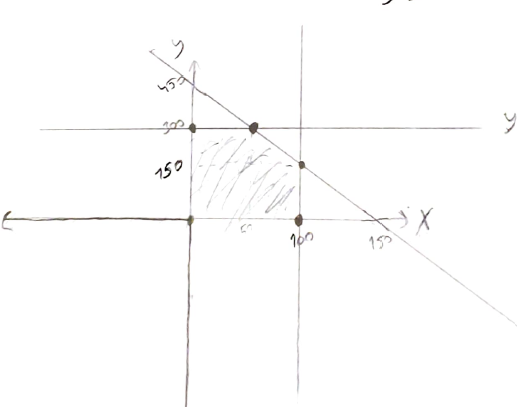 y
450
300
y
150
X
50
100
150